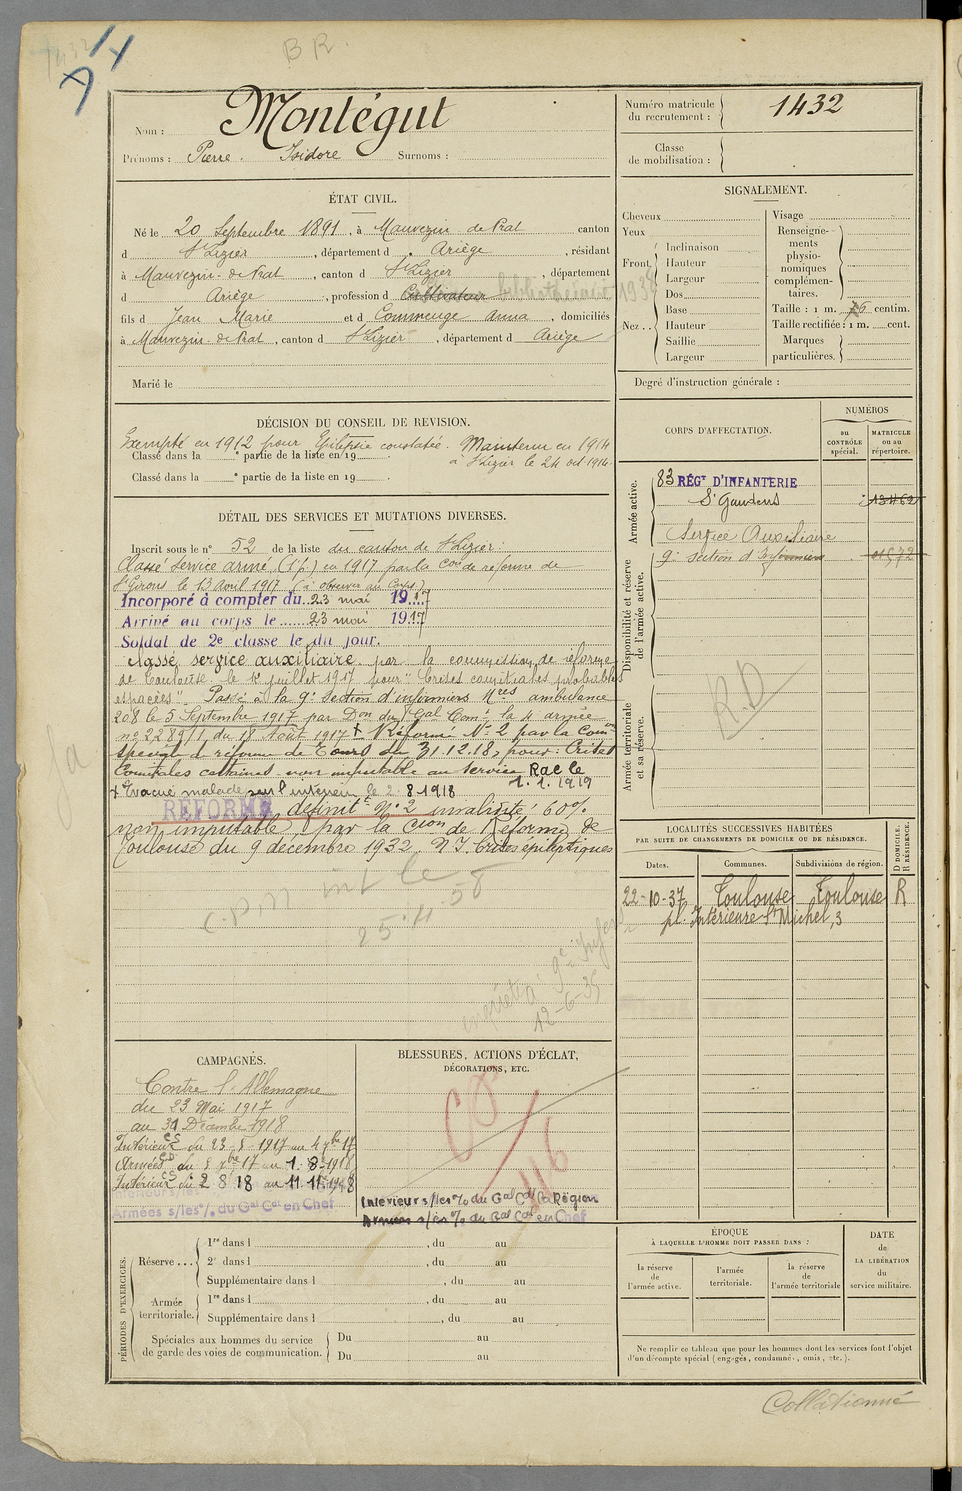 BR.
Nom : Montégut
Prénoms : Pierre. Isidore Surnoms :
Numéro matricule du recrutement : 1432
Classe de mobilisation :
ÉTAT CIVIL.
Né le 20 Septembre 1891, à Mauvezin de Prat canton
d St Lizier, département d Ariège, résidant
à Mauvezin-de Prat, canton d St Lizier, département
d Ariège, profession d Cultivateur
fils d Jean Marie et d Commenge Anna, domiciliés
à Mauvezin-de Prat, canton d St Lizier, département d Ariège
Marié le
SIGNALEMENT.
Cheveux
Yeux
Front Inclinaison
Hauteur
Largeur
Nez Dos
Base
Hauteur
Saillie
Largeur
Visage
Renseigne-
ments
physio-
nomiques
complémen-
taires.
Taille : 1 m. 76 centim.
Taille rectifiée : 1 m. cent.
Marques
particulières.
Degré d'instruction générale :
DÉCISION DU CONSEIL DE REVISION.
Exempté en 1912 pour Epilepsie constatée. Maintenu en 1914
Classé dans la e partie de la liste en 19 . à St Lizier le 24 oct 1914.
Classé dans la e partie de la liste en 19 .
DÉTAIL DES SERVICES ET MUTATIONS DIVERSES.
Inscrit sous le n° 52 de la liste du canton de St Lizier.
Classé Service armé (1 p) en 1917 par la Con de réforme de
St Girons le 13 Avril 1917 (à observer au Corps)
Incorporé à compter du 23 mai 1917
Arrivé au corps le 23 mai 1917
Soldat de 2e classe le du jour.
Classé service auxiliaire par la commission de réforme
de Toulouse le 1e juillet 1917 pour "Crises comitiales probables
espacées" Passé à la 9e Section d'infirmiers Mres ambulance
208 le 5 Septembre 1917 par Don du Gal Comt la 4 armée
n° 2289/1 du 18 Août 1917 + Réformé N° 2 par la Comon
spéciale de réforme de Tours du 31.12.18, pour : Crises
Comitiales certaines non imputable au service Rac le
1.1.1919
+ Evacué malade sur l'intérieur le 2.8.1918
REFORMÉ définitt N° 2 invalidité 60%
non imputable, par la Cion de Réforme de
Toulouse du 9 décembre 1932. N I Crises épileptiques
25.11.58
12-6-35
CORPS D'AFFECTATION.
NUMÉROS
du CONTRÔLE spécial.
MATRICULE ou au répertoire.
Armée active.
83 RÉGT D'INFANTERIE
St Gaudens
Service Auxiliaire
9e section d'Infirmiers
Disponibilité et réserve de l'armée active.
Armée territoriale et sa réserve.
R.D
LOCALITÉS SUCCESSIVES HABITÉES
PAR SUITE DE CHANGEMENTS DE DOMICILE OU DE RÉSIDENCE.
D DOMICILE. R RÉSIDENCE.
Dates. Communes. Subdivisions de région.
22-10-37 Toulouse Toulouse R
pl. Intérieure St Michel, 3
CAMPAGNES.
Contre l'Allemagne
du 23 Mai 1917
au 31 Décembre 1918
Intérieur CS du 23-5-1917 au 4 7bre 17
Armées CD du 5 7bre 17 au 1.8-1918
Intérieur CS du 2 8 18 au 11-11-1918
Armées s/les % du Gal Cdt en Chef
BLESSURES, ACTIONS D'ÉCLAT,
DÉCORATIONS, ETC.
Intérieur s/les % du Gal Cdt la Région
Armées s/les % du Gal Cdt en Chef
PÉRIODES D'EXERCICES.
Réserve... 1re dans l , du au
2e dans l , du au
Supplémentaire dans l , du au
Armée territoriale. 1re dans l , du au
Supplémentaire dans l , du au
Spéciales aux hommes du service
de garde des voies de communication. Du au
Du au
ÉPOQUE
À LAQUELLE L'HOMME DOIT PASSER DANS :
la réserve de l'armée active.
l'armée territoriale.
la réserve de l'armée territoriale
DATE de LA LIBÉRATION du service militaire.
Ne remplir ce tableau que pour les hommes dont les services font l'objet
d'un décompte spécial (engagés, condamnés, omis, etc.).
Collationné